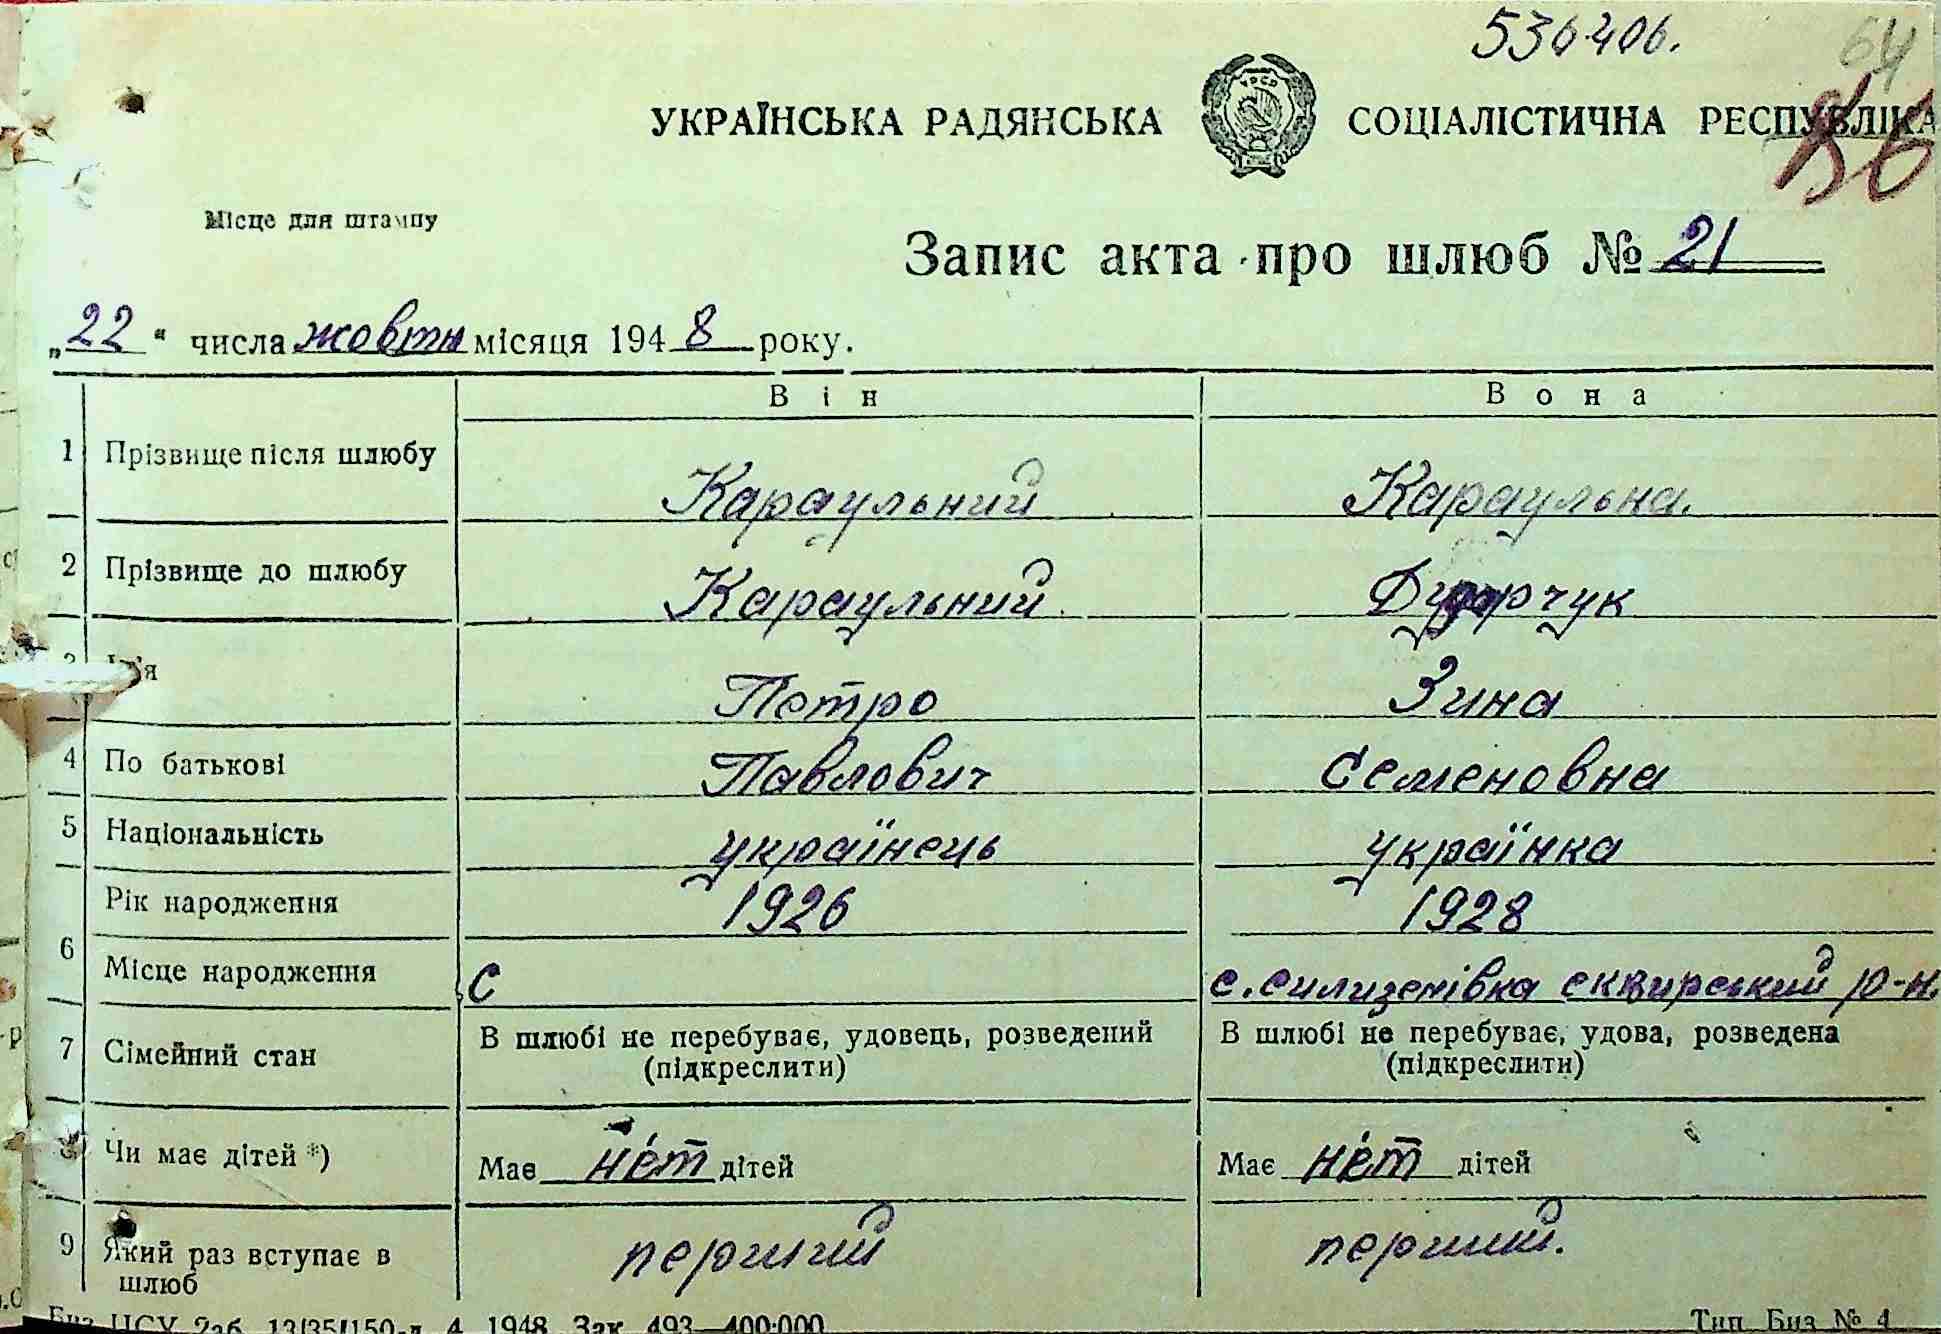 536406.
64
УКРАЇНСЬКА РАДЯНСЬКА СОЦІАЛІСТИЧНА РЕСПУБЛІКА
Місце для штампу
Запис акта про шлюб № 21
„22“ числа жовтн місяця 1948 року.
Він Вона
1 Прізвище після шлюбу Караульний Караульна.
2 Прізвище до шлюбу Караульний
Петро Зина
4 По батькові Павлович Семеновна
5 Національність українець українка
Рік народження 1926 1928
6 Місце народження с с. сквирський р-н.
7 Сімейний стан В шлюбі не перебуває, удовець, розведений (підкреслити) В шлюбі не перебуває, удова, розведена (підкреслити)
Чи має дітей *) Має нет дітей Має нет дітей
9 Який раз вступає в шлюб перший перший.
ЦСУ 1948 Зак. 493—400.000 Тип. Биз № 4